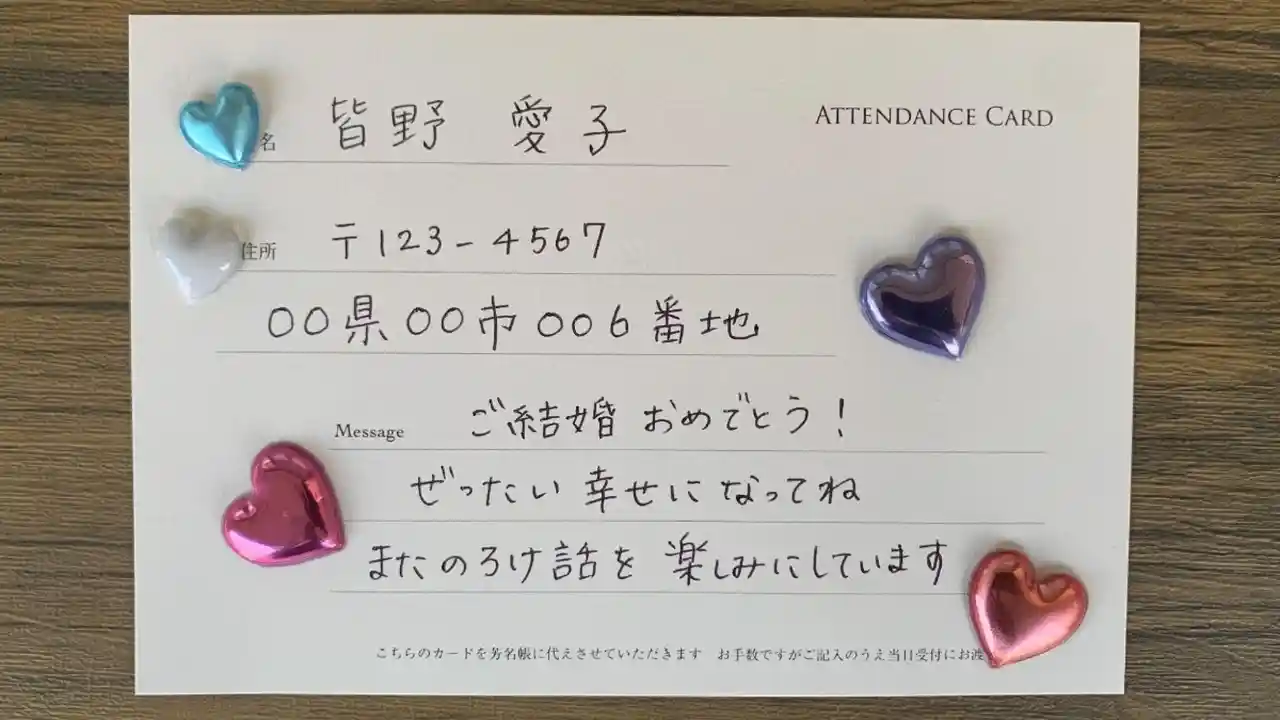 ATTENDANCE CARD
名 皆野 愛子
住所 〒123-4567
〇〇県〇〇市〇〇6番地
Message ご結婚おめでとう!
ぜったい幸せになってね
またのろけ話を楽しみにしています
こちらのカードを芳名帳に代えさせていただきます お手数ですがご記入のうえ当日受付にお渡